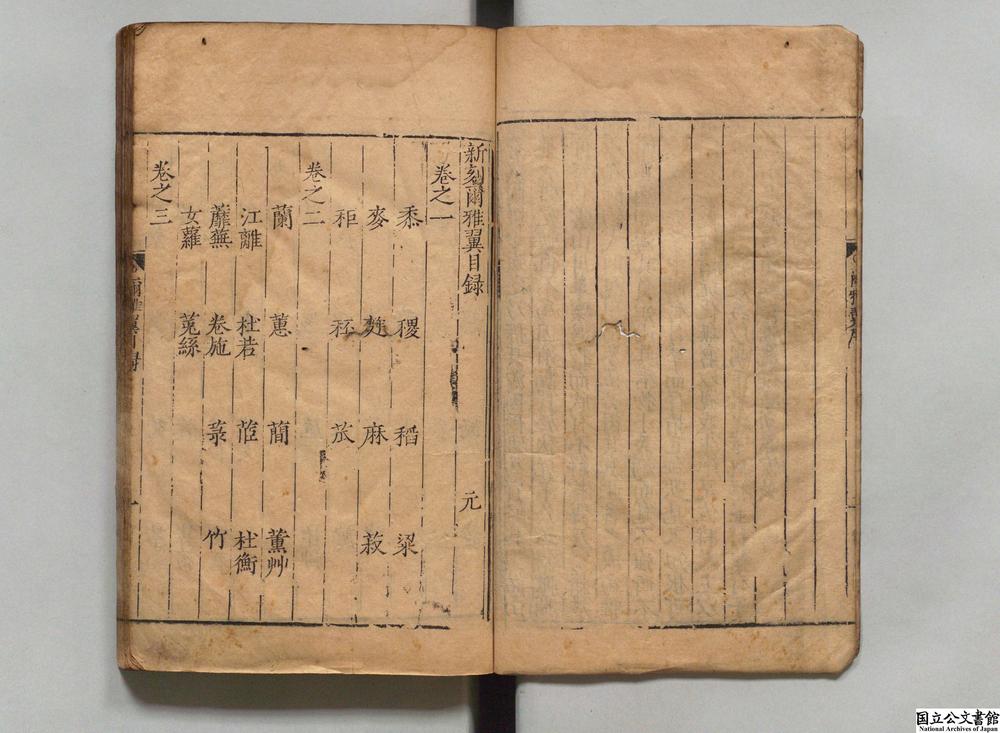 新刻爾雅翼目録 元
卷之一
黍 稷 稻 粱
麥 麰 麻 菽
秬 秠 苽
卷之二
蘭 蕙 蕑 薰艸
江離 杜若 茝 杜衡
蘼蕪 卷施 菉 竹
女蘿 菟絲
卷之三
爾雅翼目録 一
国立公文書館
National Archives of Japan